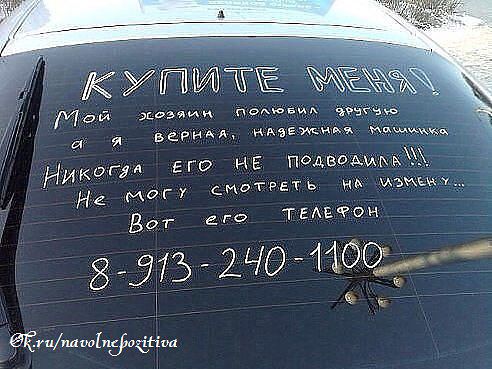 КУПИТЕ МЕНЯ!
Мой хозяин полюбил другую
а я верная, надежная машинка
Никогда его не подводила!!!
Не могу смотреть на измену...
Вот его телефон
8-913-240-1100
Ok.ru/navolnepozitiva